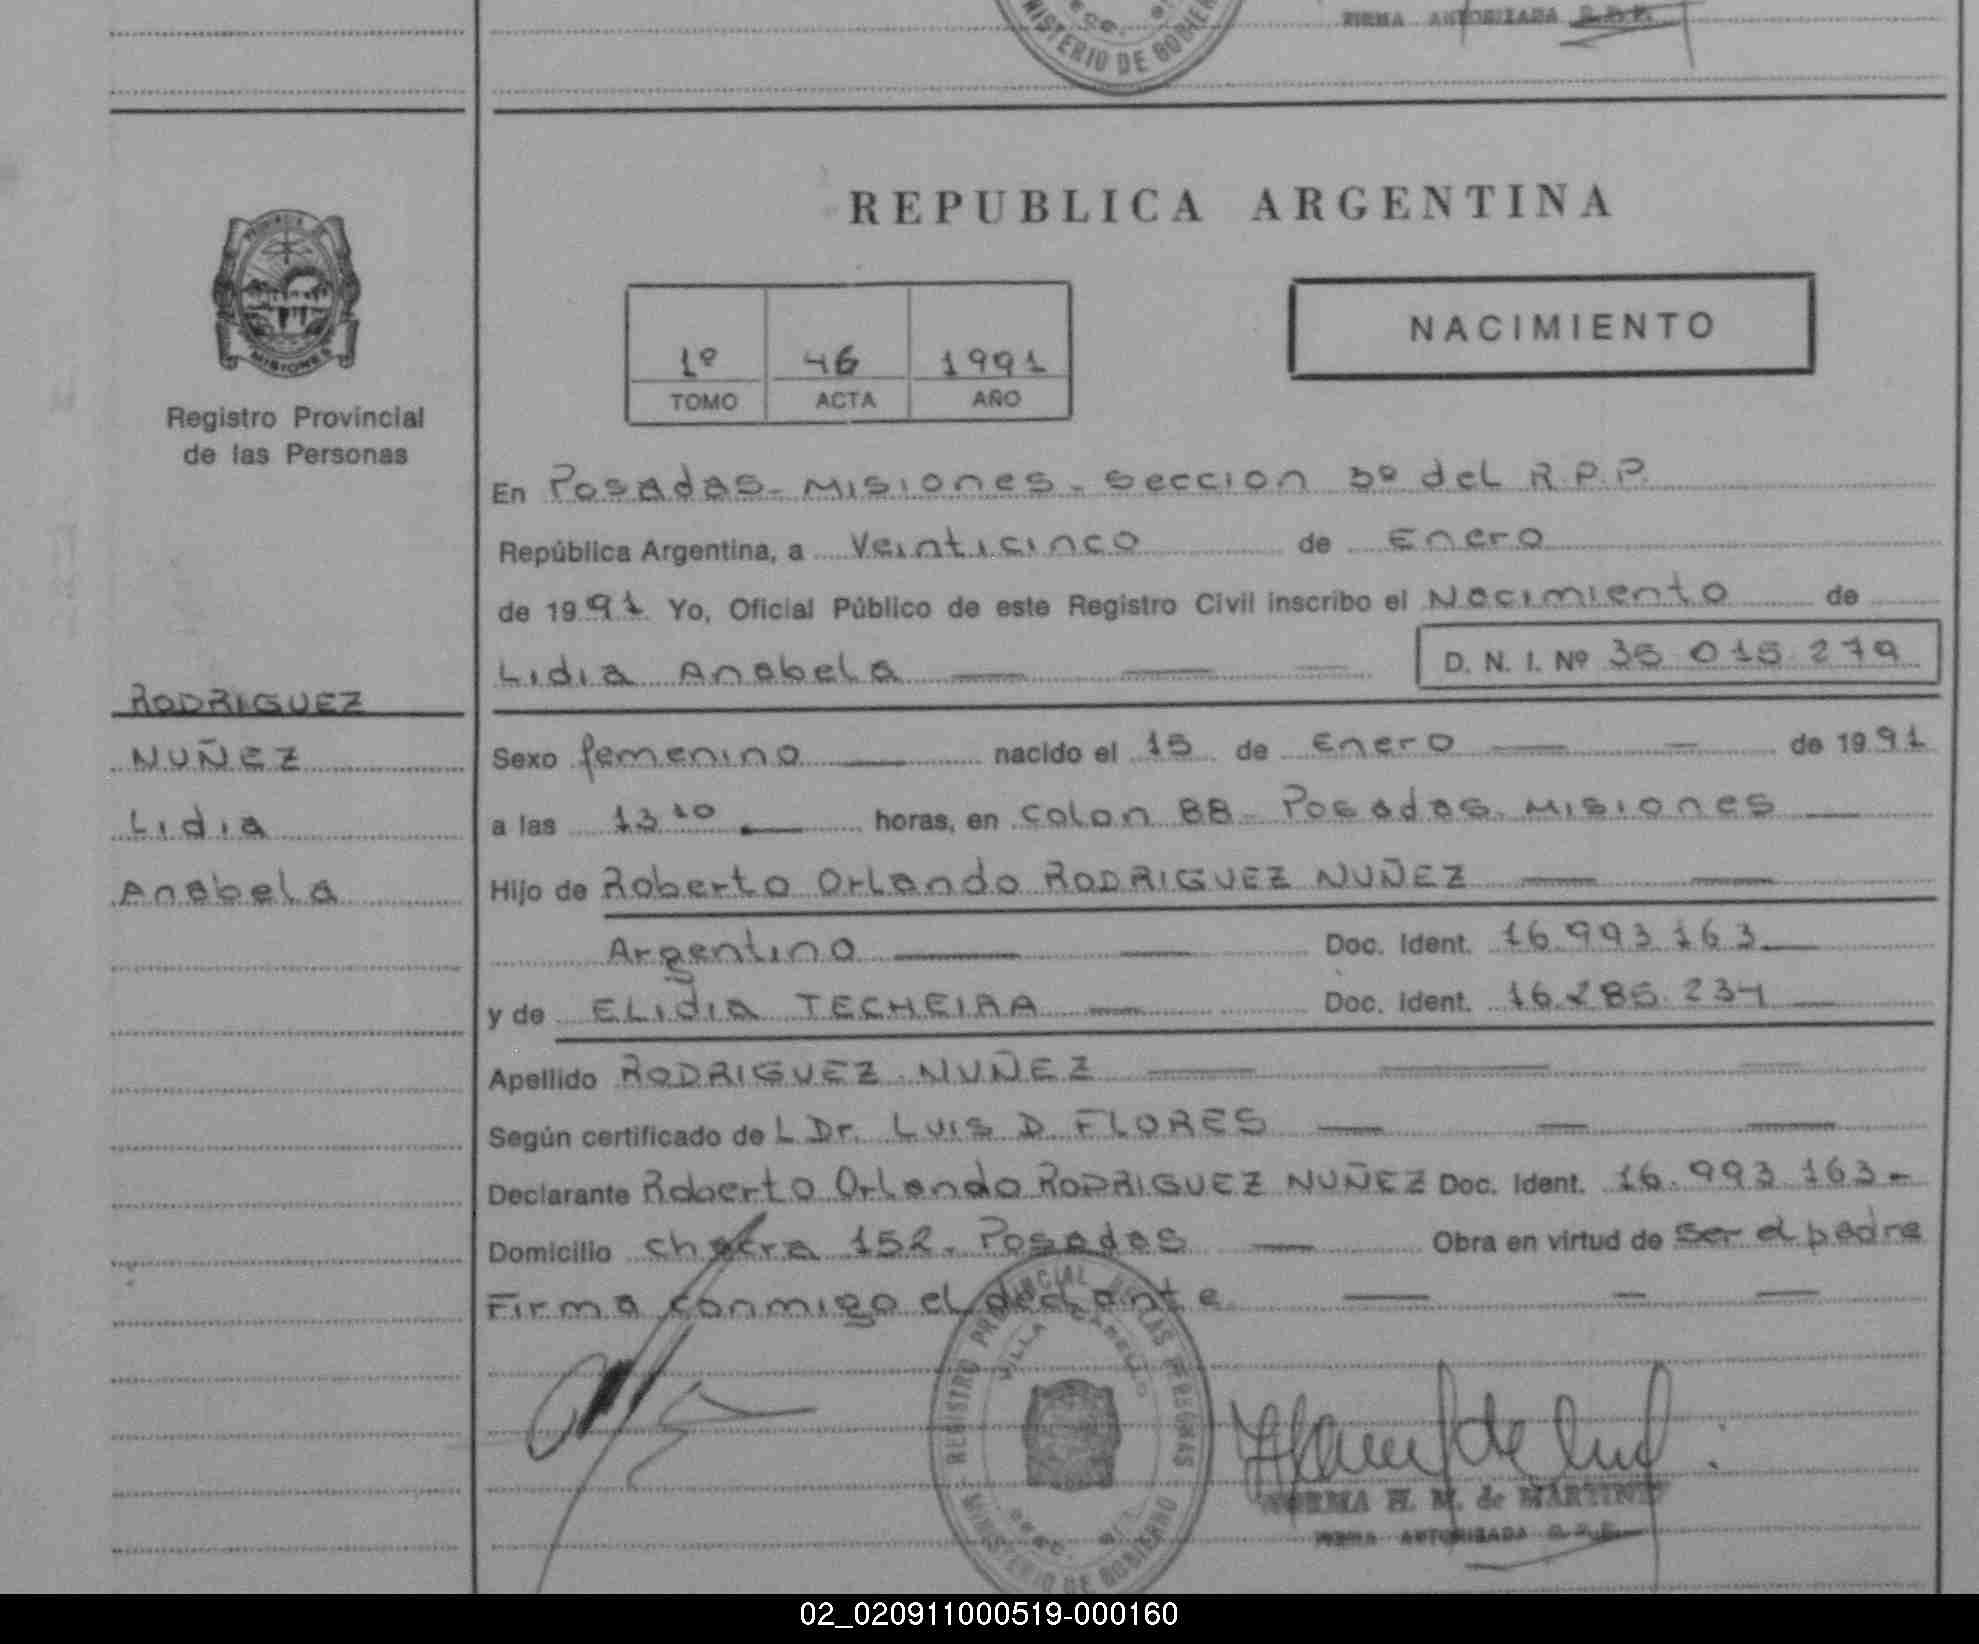 FIRMA AUTORIZADA
MINISTERIO DE GOBIERNO
REPUBLICA ARGENTINA
PROVINCIA DE
MISIONES
Registro Provincial
de las Personas
1º 46 1991
TOMO ACTA AÑO
NACIMIENTO
En Posadas - Misiones - seccion 3º del R.P.P.
República Argentina, a Veinticinco de Enero
de 1991 Yo, Oficial Público de este Registro Civil inscribo el Nacimiento de
Lidia Anabela D. N. I. Nº 35 015 279
RODRIGUEZ
NUÑEZ
Lidia
Anabela
Sexo femenino nacido el 15 de Enero de 1991
a las 13 10 horas, en Colon 88 - Posadas - Misiones
Hijo de Roberto Orlando RODRIGUEZ NUÑEZ
Argentino Doc. Ident. 16 993 163
y de ELidia TECHEIRA Doc. Ident. 16.285.234
Apellido RODRIGUEZ NUÑEZ
Según certificado deL Dr. LUIS D FLORES
Declarante Roberto Orlando RODRIGUEZ NUÑEZ Doc. Ident. 16.993 163-
Domicilio chacra 152. Posadas Obra en virtud de ser el padre
Firma conmigo el
REGISTRO PROVINCIAL DE LAS PERSONAS
VILLA CABELLO
MINISTERIO DE GOBIERNO
NORMA H. M. de MARTINEZ
FIRMA AUTORIZADA
02_020911000519-000160